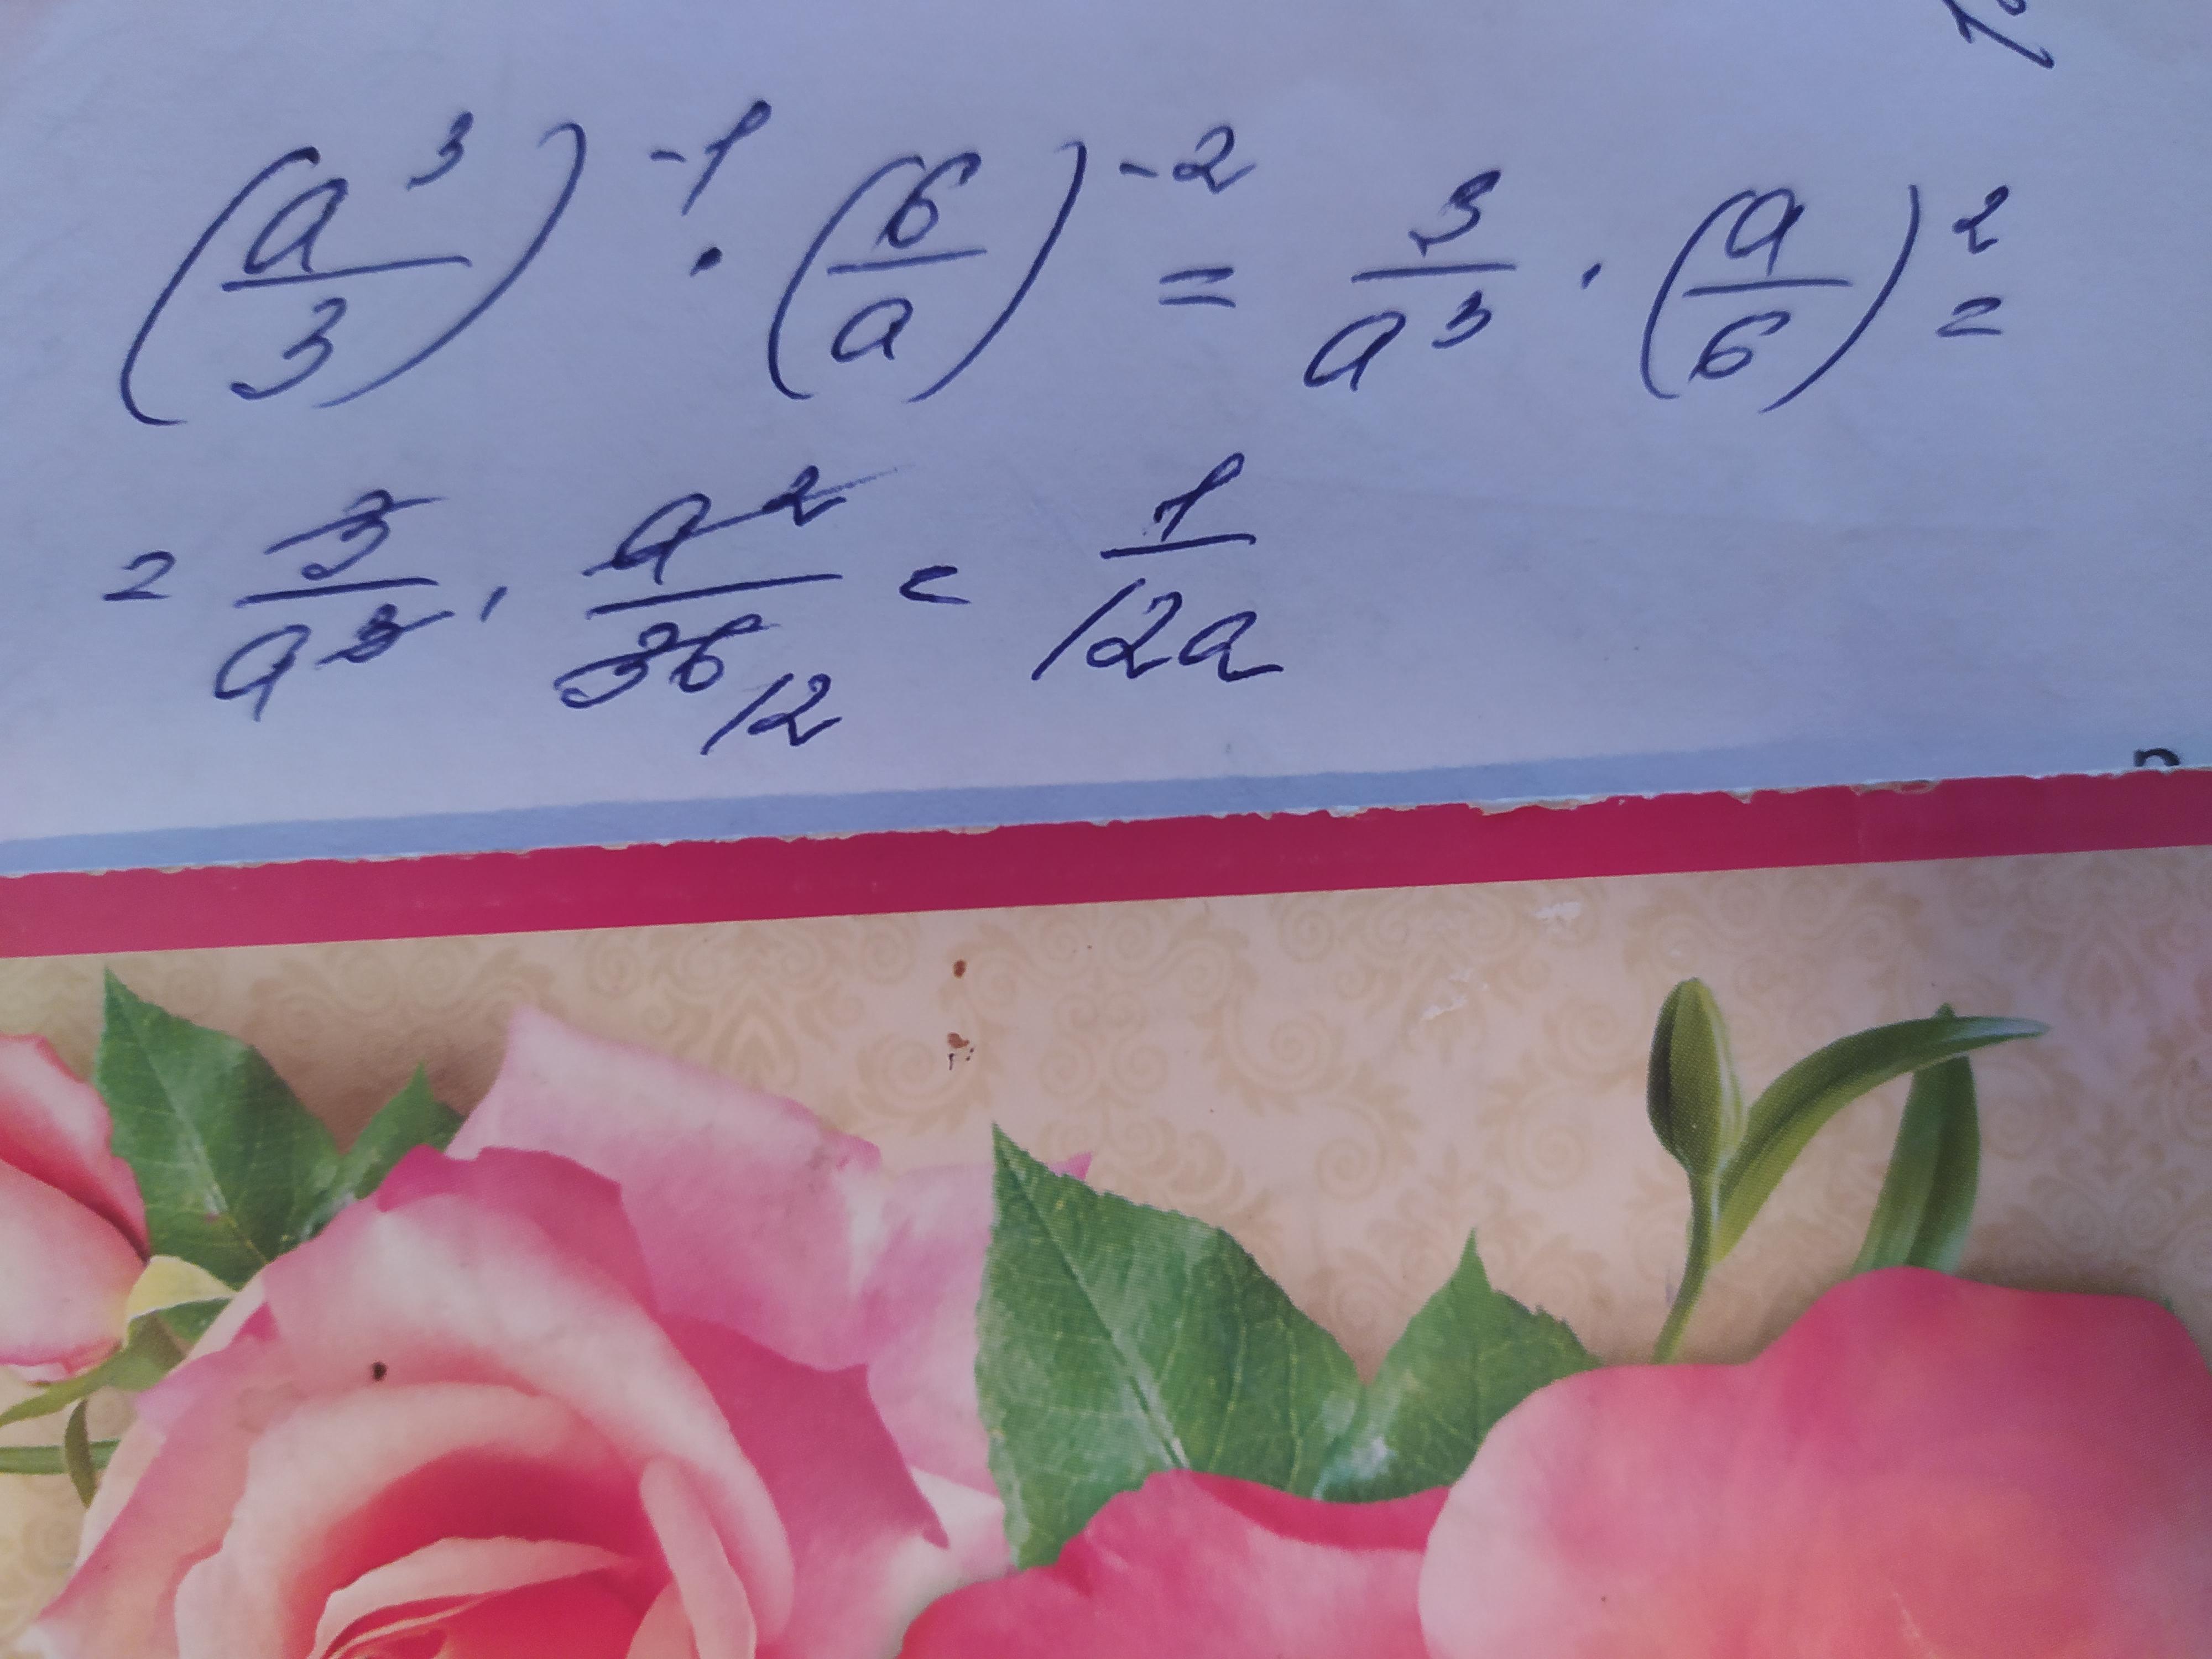 (a³/3)⁻¹ · (6/a)⁻² = 3/a³ · (a/6)² =
= 3/a³ · a²/36 12 = 1/12a